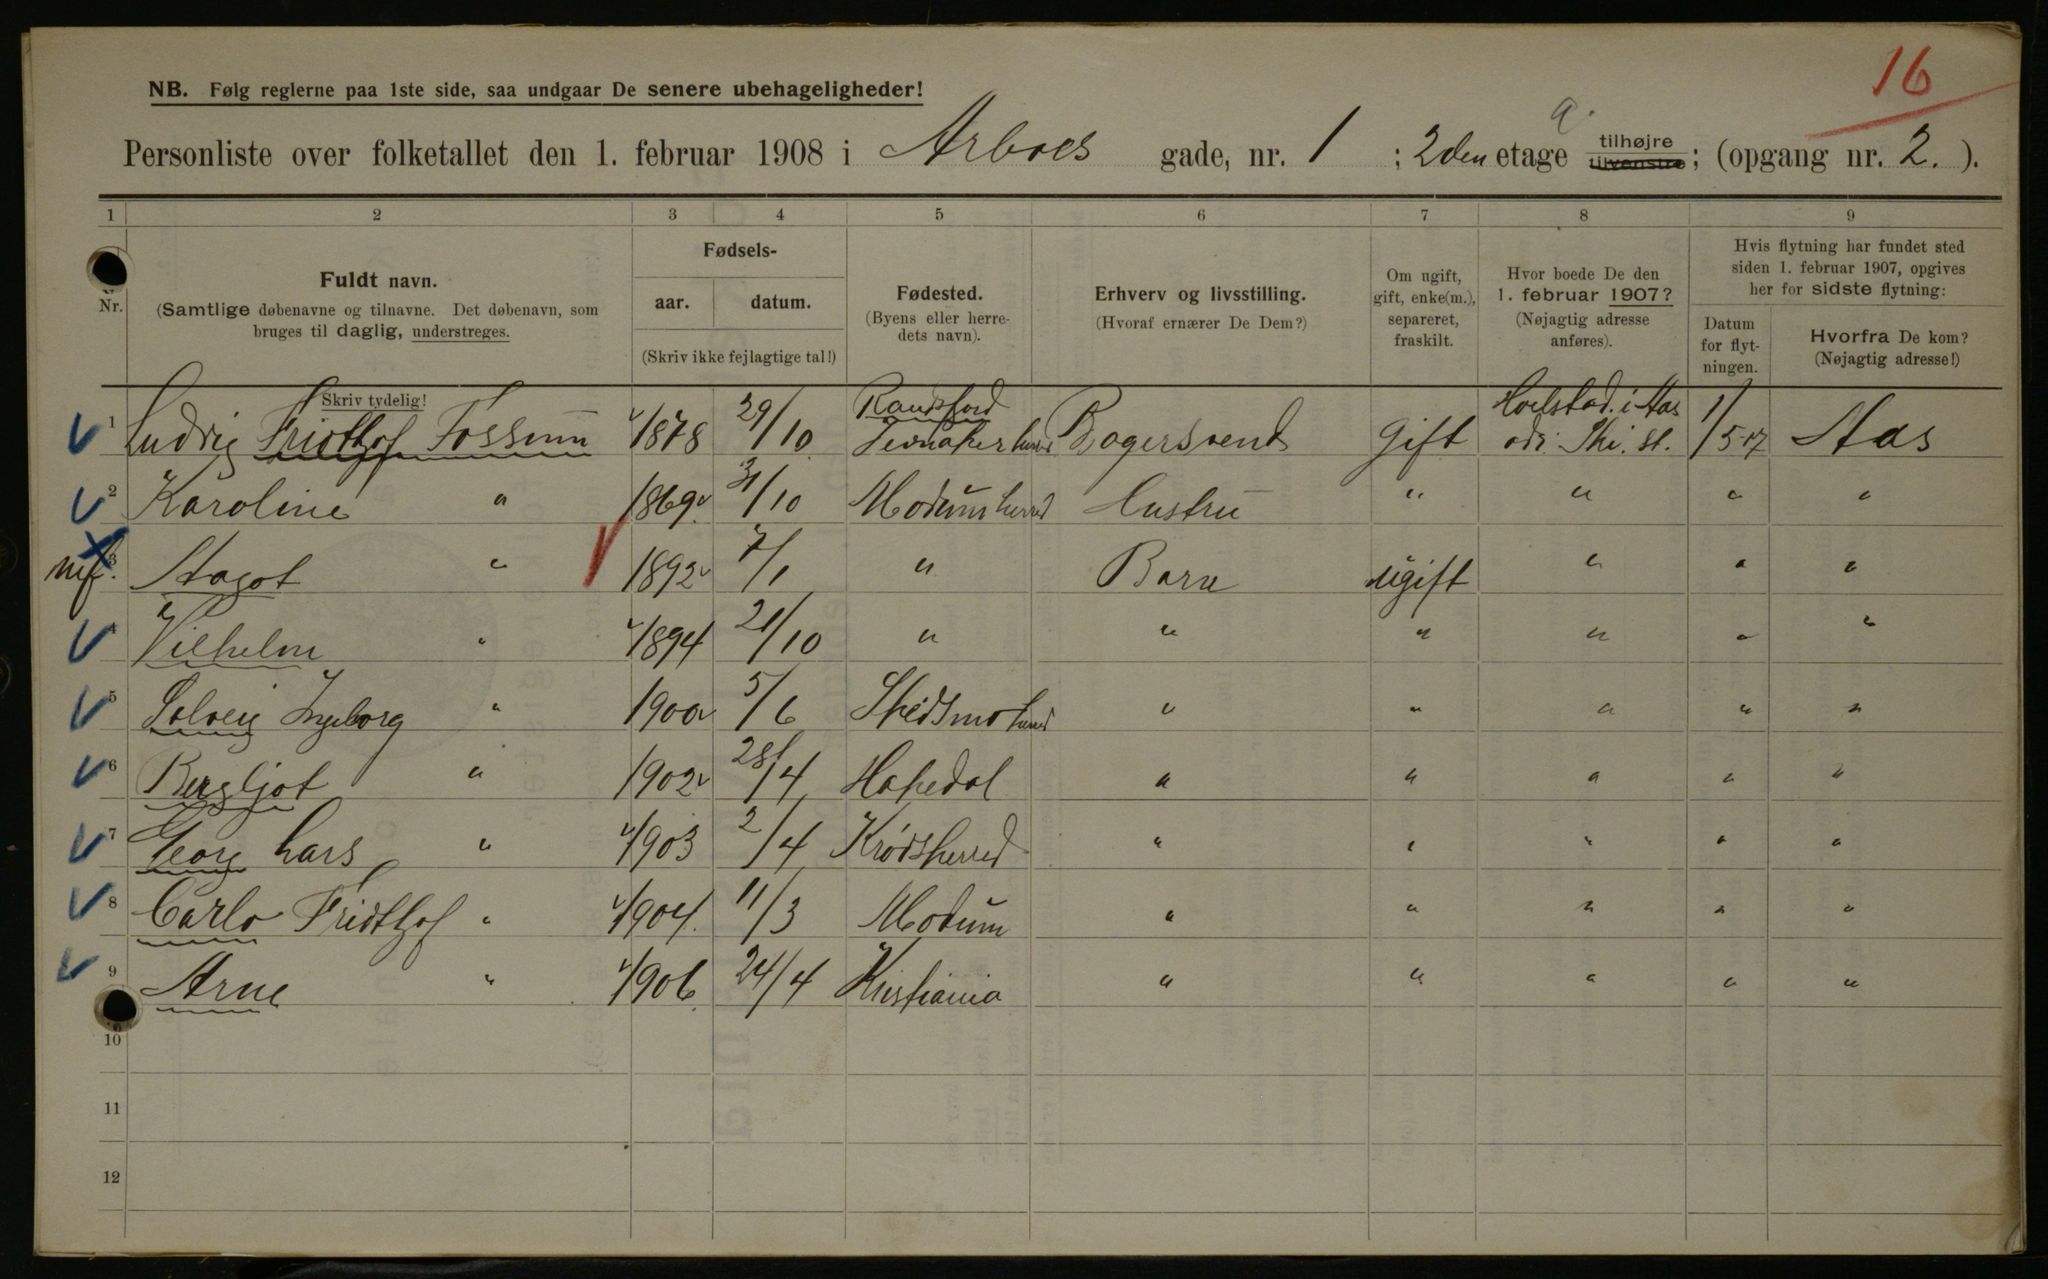 16
NB. Følg reglerne paa 1ste side, saa undgaar De senere ubehageligheder!
Personliste over folketallet den 1. februar 1908 i Arboes gade, nr. 1 ; 2den etage a. tilhøjre tilvenstre; (opgang nr. 2. ).
1 2 3 4 5 6 7 8 9
Nr.
Fuldt navn.
(Samtlige døbenavne og tilnavne. Det døbenavn, som
bruges til daglig, understreges.
Skriv tydelig!
Fødsels-
aar. datum.
(Skriv ikke fejlagtige tal!)
Fødested.
(Byens eller herre-
dets navn).
Erhverv og livsstilling.
(Hvoraf ernærer De Dem?)
Om ugift,
gift, enke(m.),
separeret,
fraskilt.
Hvor boede De den
1. februar 1907?
(Nøjagtig adresse
anføres).
Hvis flytning har fundet sted
siden 1. februar 1907, opgives
her for sidste flytning:
Datum
for flyt-
ningen.
Hvorfra De kom?
(Nøjagtig adresse!)
1 Ludvig Fridthjof Fossum 1878 29/10 Randsfjord Jevnaker herred Bagersvend Gift Holstad i Aas Ski. st. 1/5-07 Aas
2 Karoline " 1869 31/10 Modum herred Hustru " " " "
3 Aagot " 1892 7/1 " Barn ugift " " "
4 Vilhelm " 1894 21/10 " " " " " "
5 Solveig Ingeborg " 1900 5/6 Skedsmo herred " " " " "
6 Bergljot " 1902 28/4 Hakedal " " " " "
7 Georg Lars " 1903 2/4 Krødsherred " " " " "
8 Carlo Fridthjof " 1904. 11/3 Modum " " " " "
9 Arne " 1906. 24/4 Kristiania " " " " "
10
11
12